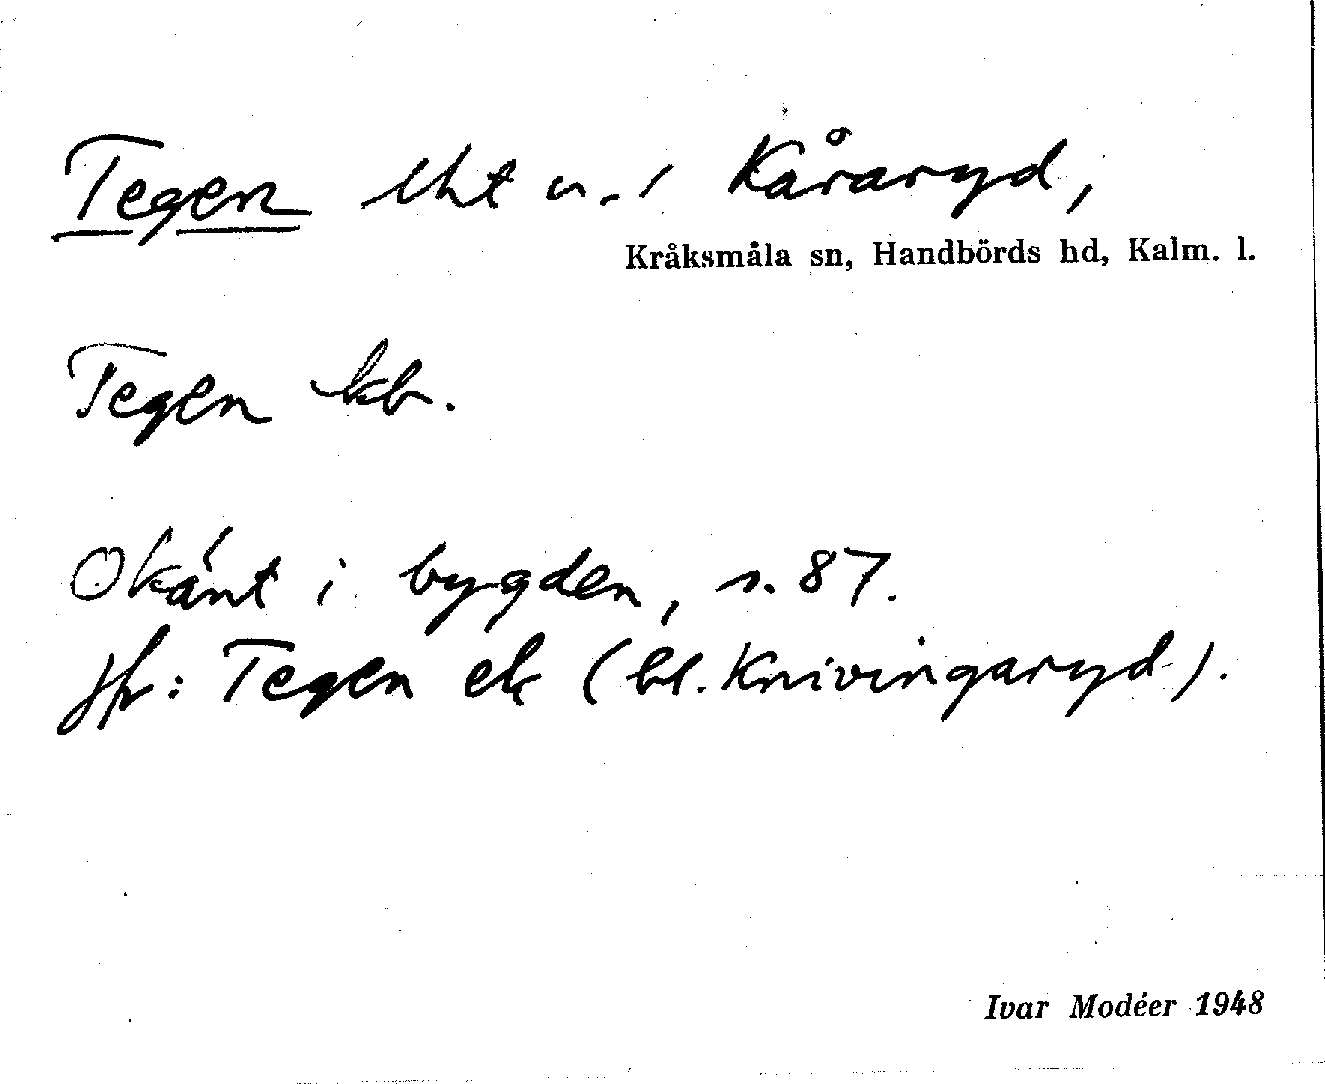 Tegen lht u. / Kåraryd,
Kråksmåla sn, Handbörds hd, Kalm. l.
Tegen kb.
Okänt i bygden, s. 87.
jfr: Tegen ek (bl. Knivingaryd).
Ivar Modéer 1948